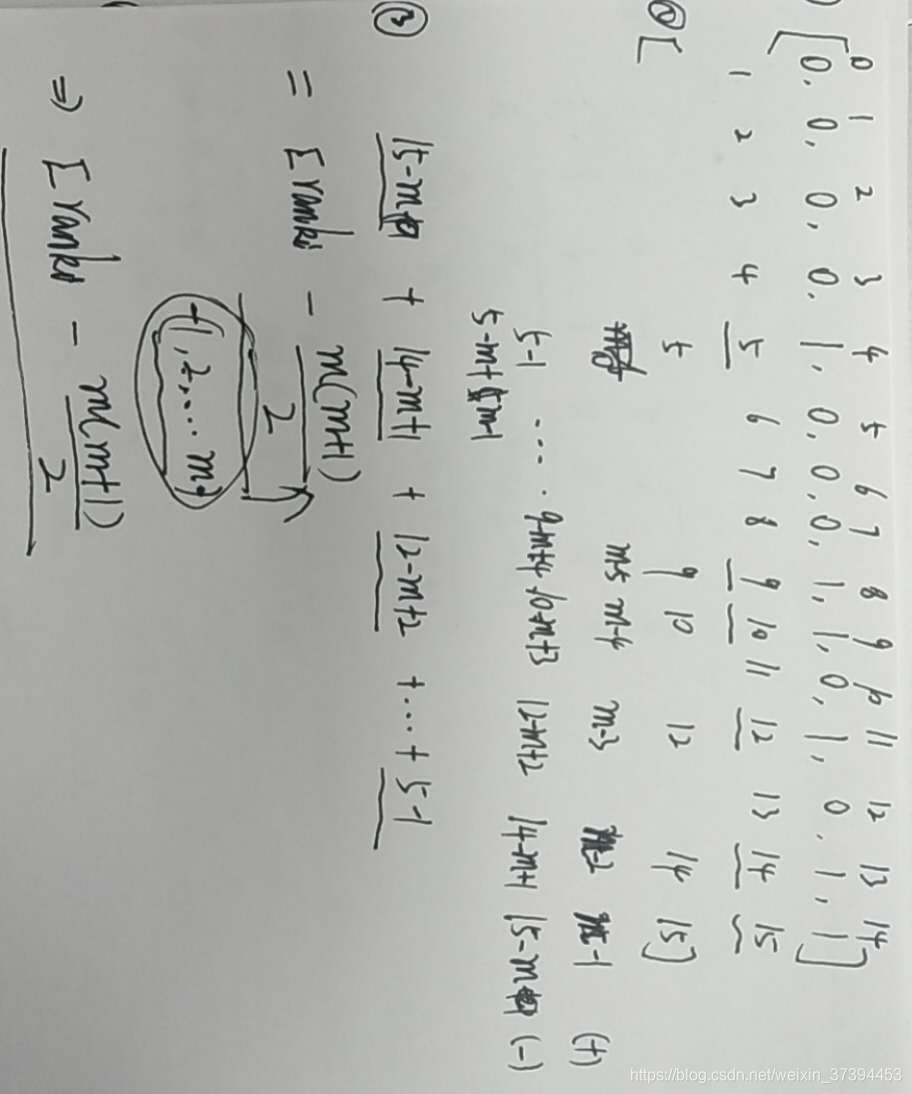 0 1 2 3 4 5 6 7 8 9 10 11 12 13 14
[0, 0, 0, 0, 1, 0, 0, 0, 1, 1, 0, 1, 0, 1, 1]
1 2 3 4 5 6 7 8 9 10 11 12 13 14 15
② [ 5 9 10 12 14 15]
m-5 m-4 m-3 m-2 m-1 (+)
5-1 ... 9-m+4 10-m+3 12-m+2 14-m+1 15-m (-)
5-m+m-1
③ 15-m + 14-m+1 + 12-m+2 + ... + 5-1
= Σ ranki - m(m+1)/2
+1, 2, ... m
⇒ Σ ranki - m(m+1)/2
https://blog.csdn.net/weixin_37394453